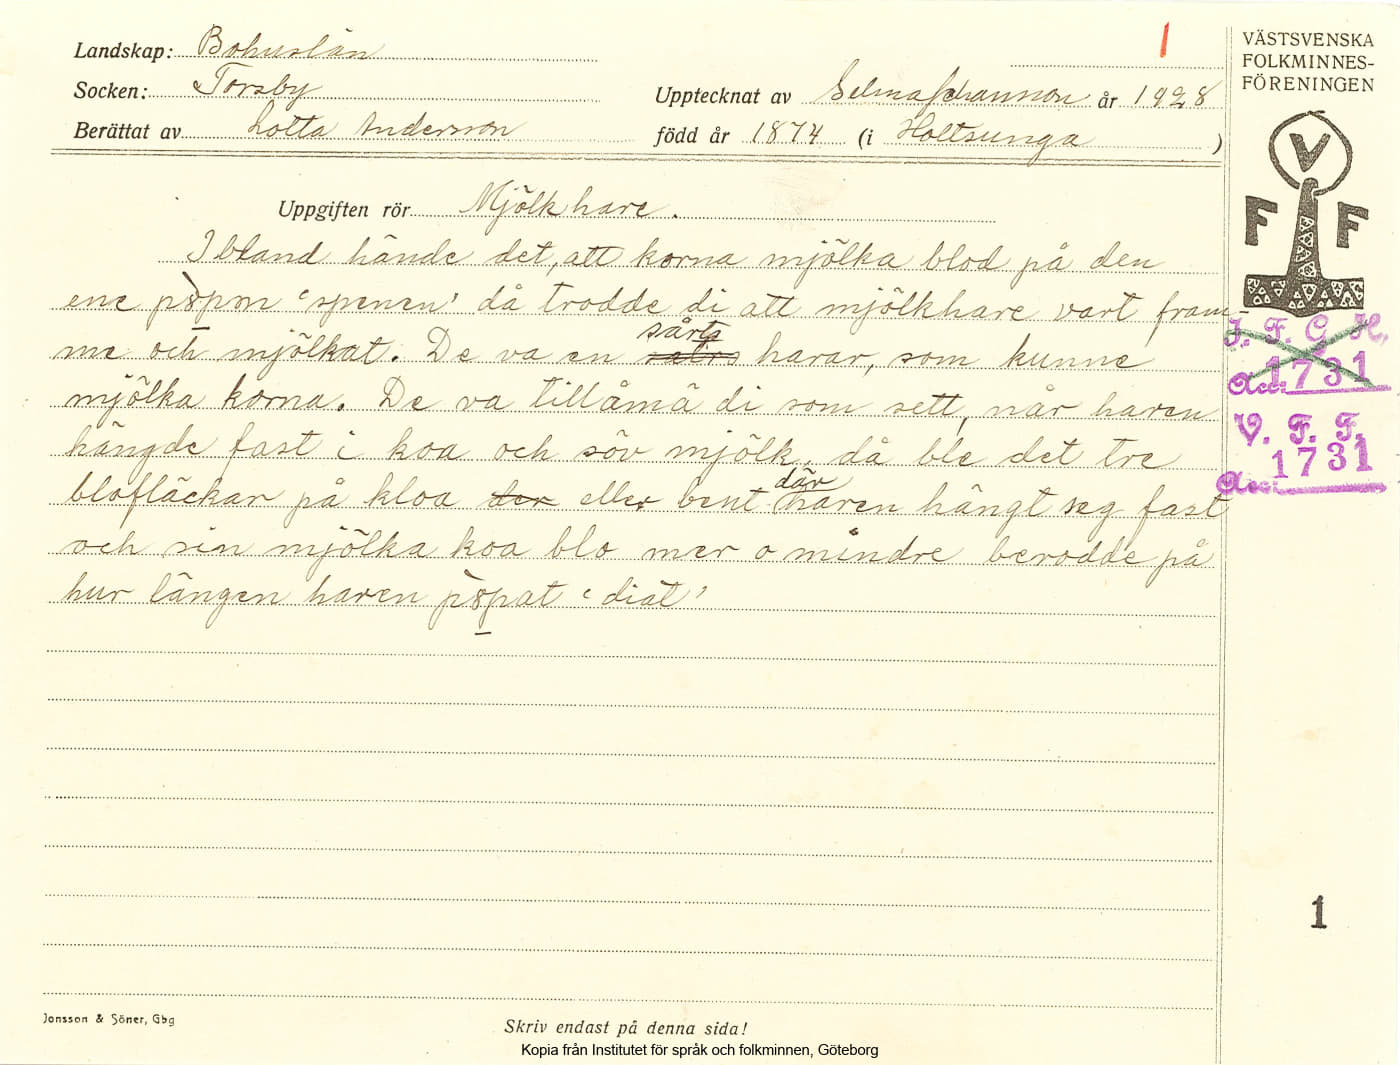 Landskap: Bohuslän
Socken: Torsby
Berättat av Lotta Anderson
1
Upptecknat av Selma Johansson år 1928
född år 1874 (i Holtsunga )
VÄSTSVENSKA
FOLKMINNES-
FÖRENINGEN
V
F F
Uppgiften rör Mjölkhare.
Ibland hände det, att korna mjölka blod på den
ene pȣpen ‘spenen’ då trodde di att mjölkhare vart fram-
me och mjölkat. De va en sårts harar, som kunne
mjölka korna. De va tillåmä di som sett, når haren
hängde fast i koa och söv mjölk, då ble det tre
blofläckar på kloa der eller bent där haren hängt seg fast
och sin mjölka koa blo mer o mindre berodde på
hur längen haren pȣpat ‘diat’
I. F. G. H.
Acc. 1731
V. F. F.
Acc. 1731
1
Jonsson & Söner, Gbg
Skriv endast på denna sida!
Kopia från Institutet för språk och folkminnen, Göteborg